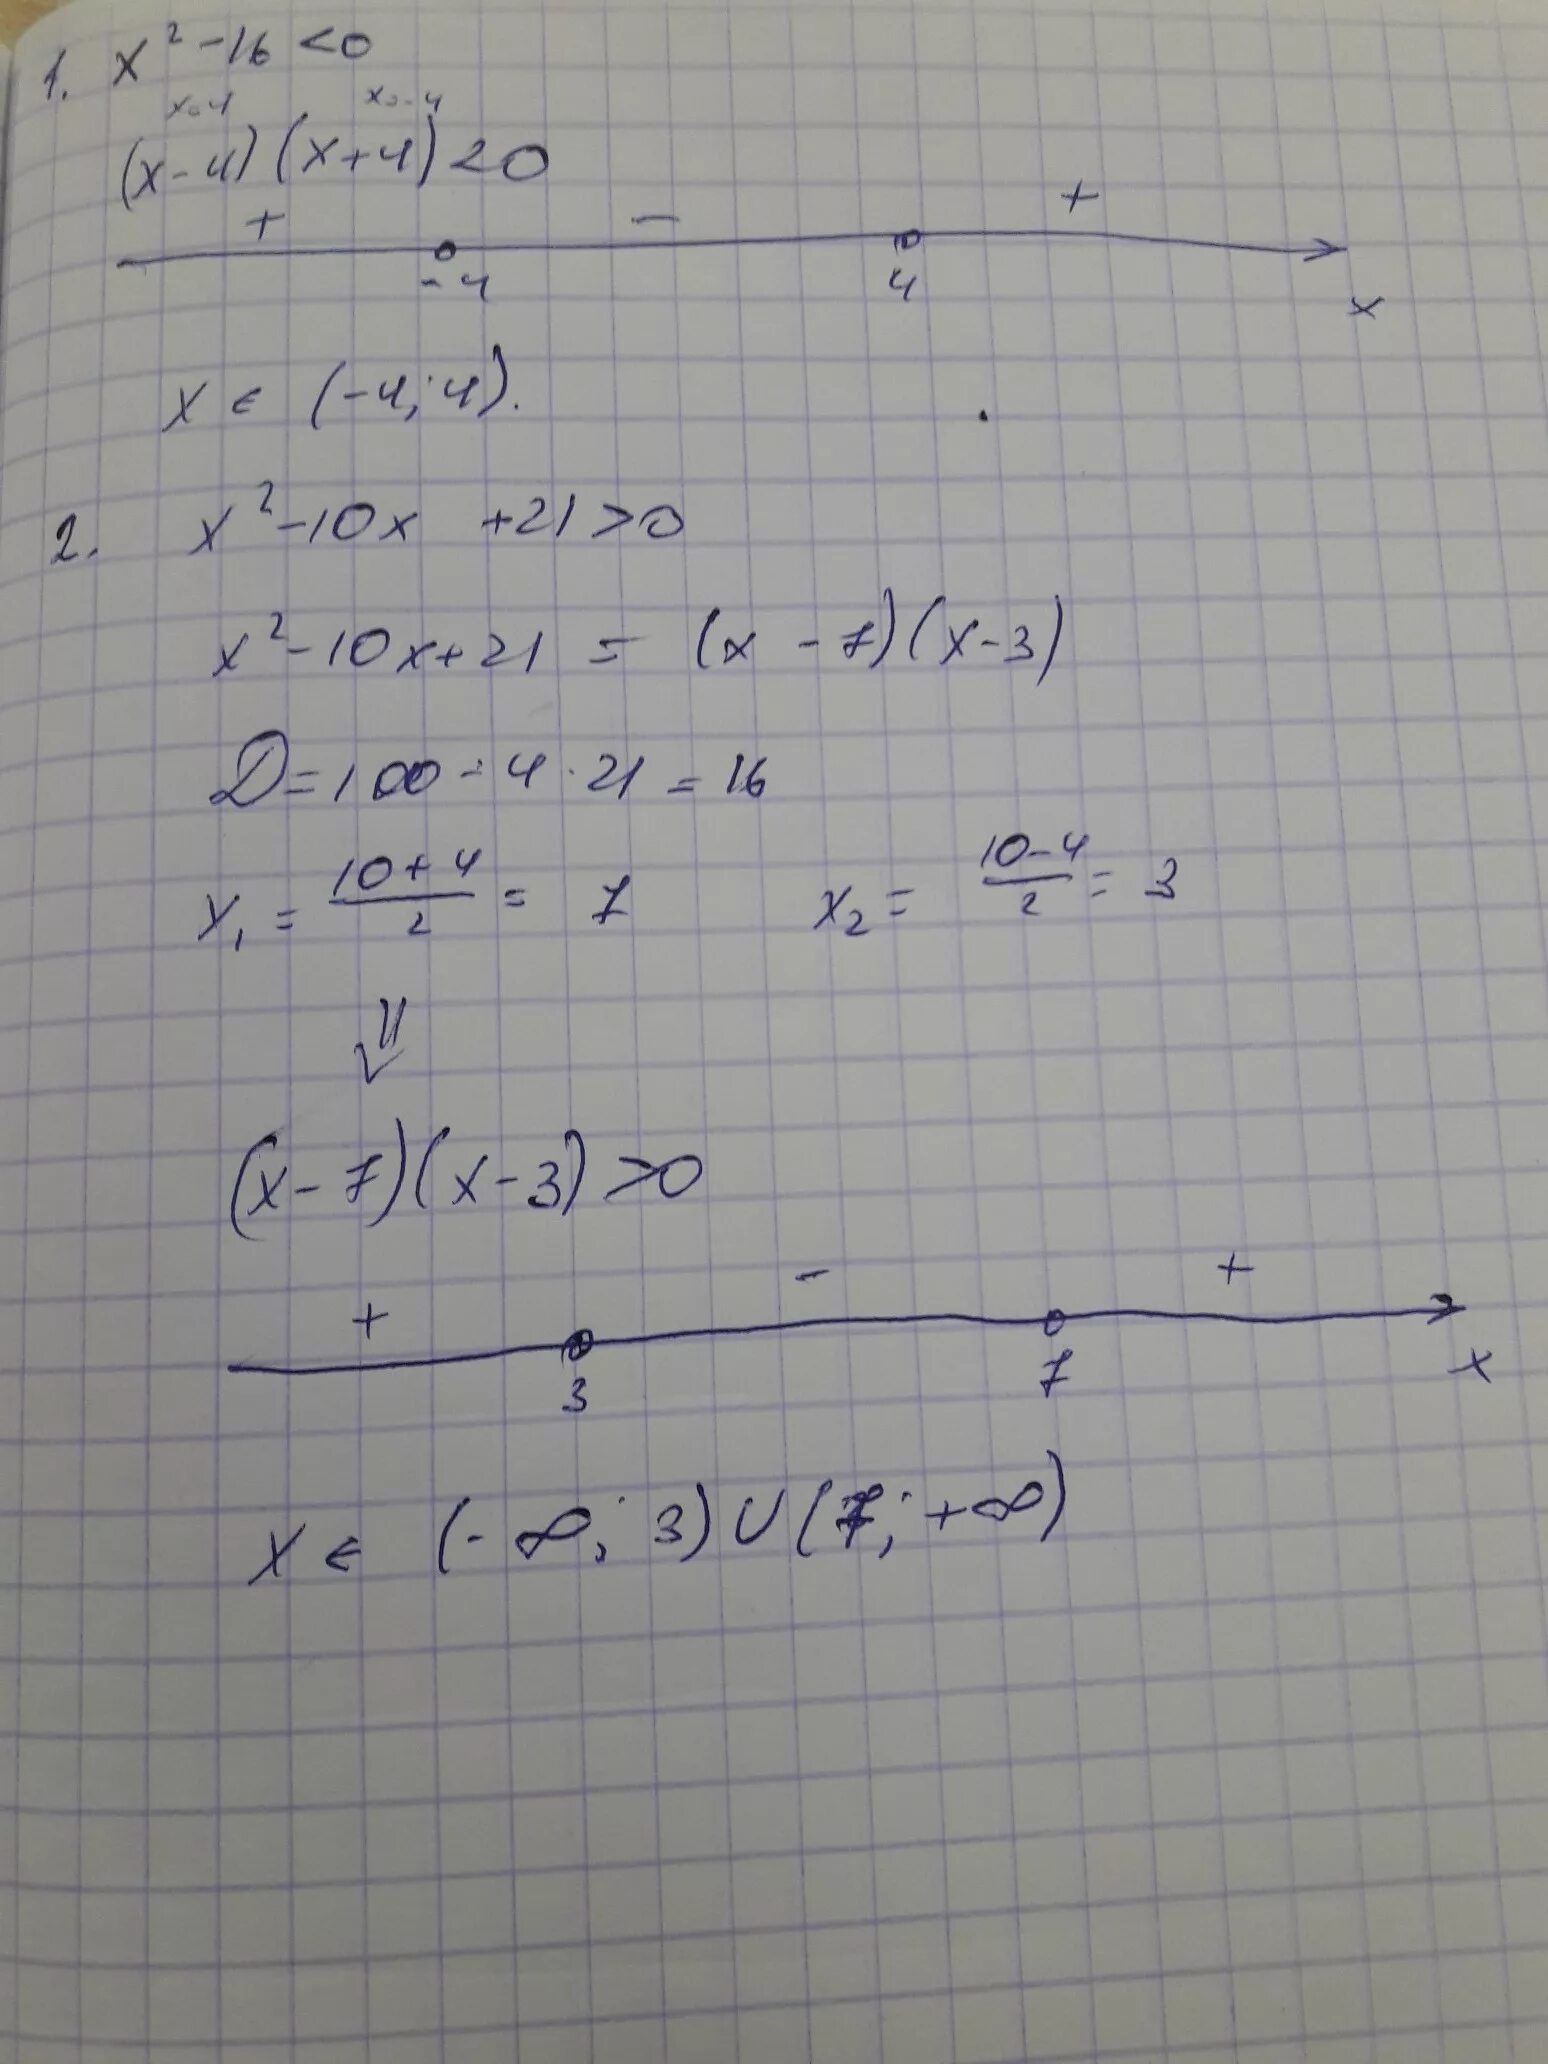 1. x² - 16 < 0
x=4 x=-4
(x-4)(x+4)<0
+ - +
-4 4 x
x ∈ (-4; 4).
2. x² - 10x +21>0
x² - 10x + 21 = (x - 7)(x - 3)
D = 100 - 4 · 21 = 16
x₁ = (10+4)/2 = 7 x₂ = (10-4)/2 = 3
⇓
(x-7)(x-3)>0
+ - +
3 7 x
x ∈ (-∞; 3) ∪ (7; +∞)